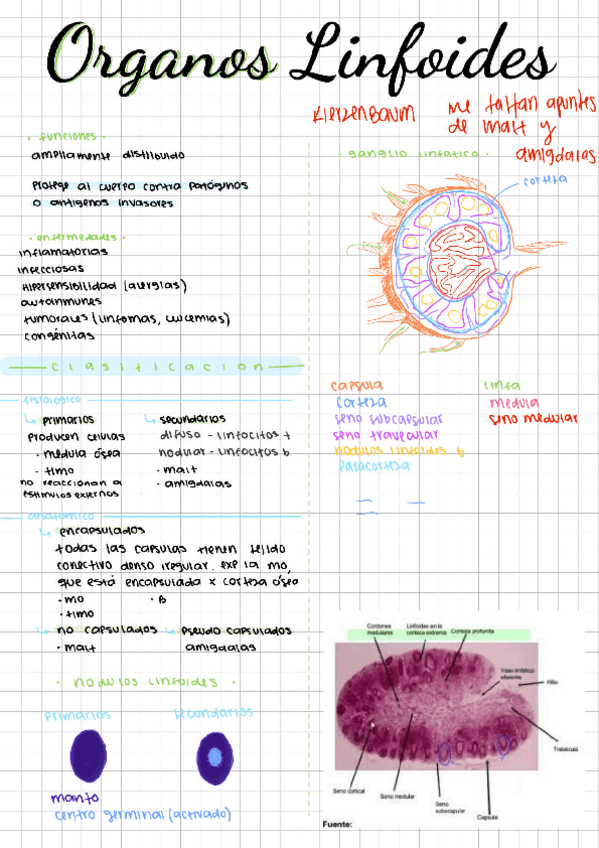 Organos Linfoides
Kierzenbaum
me faltan apuntes
de malt y
amigdalas
· funciones ·
ampliamente distribuido
protege al cuerpo contra patógenos
o antígenos invasores
· enfermedades ·
inflamatorias
infecciosas
Hipersensibilidad (alergias)
autoinmunes
tumorales (linfomas, leucemias)
congénitas
clasificación
fisiológico
primarios
producen celulas
· medula ósea
· timo
no reaccionan a
estímulos externos
secundarios
difuso - linfocitos t
nodular - linfocitos b
· malt
· amigdalas
anatómico
encapsulados
todas las capsulas tienen tejido
conectivo denso irregular. exp la mo,
que está encapsulada x corteza ósea
· mo
· B
· timo
no capsulados
· malt
pseudo capsulados
amigdalas
· nodulos linfoides ·
primarios
secundarios
manto
centro germinal (activado)
· ganglio linfático ·
corteza
capsula
corteza
seno subcapsular
seno trabecular
nodulos linfoides b
paracorteza
linfa
medula
seno medular
Cordones
medulares
Linfoides en la
corteza externa
Corteza profunda
Vaso linfático
eferente
Hilio
Trabécula
Seno cortical
Seno medular
Seno
subcapsular
Capsula
Fuente: